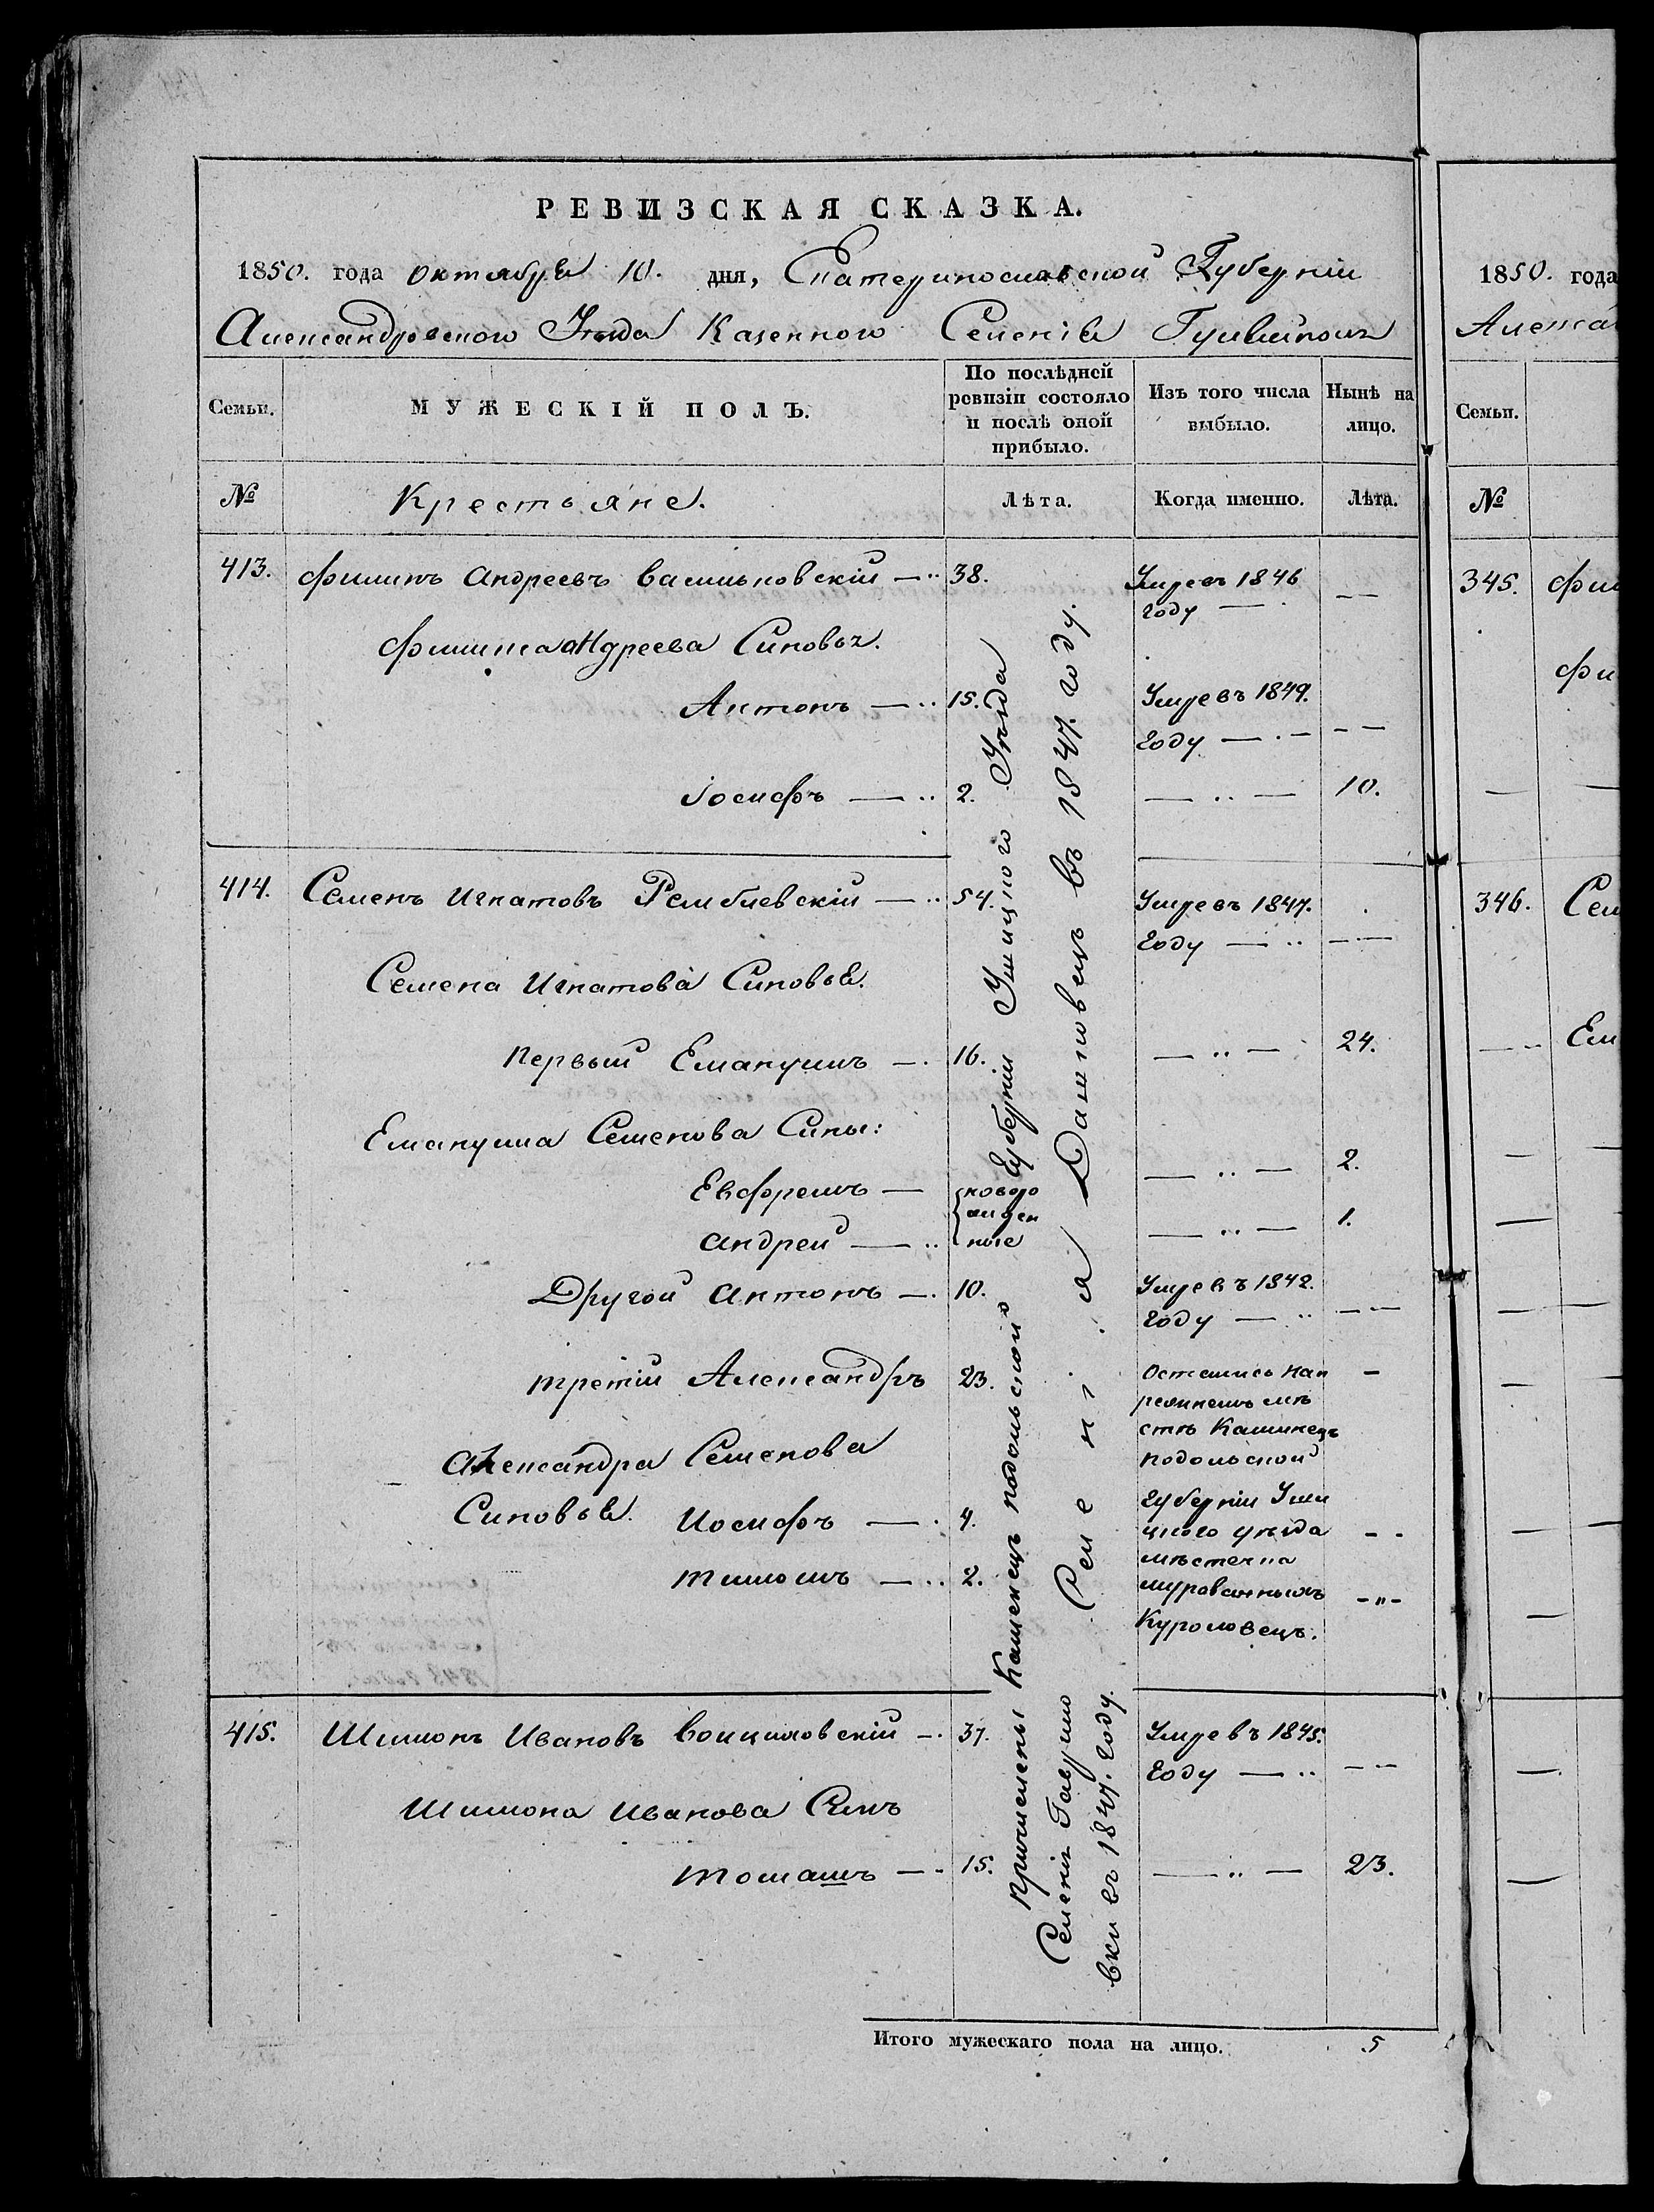 РЕВИЗСКАЯ СКАЗКА.
1850. года октября 10. дня, Екатеринославской Губерніи
Александровского Уезда Казенного Селенія Гуляйполя
Семьи.
МУЖЕСКІЙ ПОЛЪ.
По послѣдней
ревизіи состояло
и послѣ оной
прибыло.
Изъ того числа
выбыло.
Нынѣ на
лицо.
№
Крестьяне.
Лѣта.
Когда именно.
Лѣта.
413. Филипъ Андреевъ Васильковскій 38. Умре въ 1846
году
Филипа Андреева Синовья.
Антонъ 15. Умре въ 1849.
году
Іосифъ 2. 10.
414. Семенъ Игнатовъ Рембліевскій 54. Умре въ 1847.
году
Семена Игнатова Синовья.
Первый Емануилъ 16. 24.
Емануила Семенова Сины:
Евфремъ 2.
новоро
жден
ные
Андрей 1.
Другой Антонъ 10. Умре въ 1842.
году
третій Александръ 23.
Александра Семенова
Синовья. Иосифъ 4.
2.
Остались на п
режнемъ мѣ
стѣ Каминецъ
подольской
Губерніи Уши
цкого уезда
мѣстечка
мурованныхъ
Куроловецъ.
415. Шимонъ Ивановъ Войциховскій 37. Умре въ 1845.
году
Шимона Иванова Синъ
Томашъ 15. 23.
Причислены Каменецъ подольской Губерніи Ушицкого Уезда
Селенія Дашковецъ въ 1847. году.
Селенія
вки въ 1847. году.
Итого мужескаго пола на лицо. 5
1850. года
Алекса
Семьи.
№
345. Фил
Фи
346. Сем
Ем